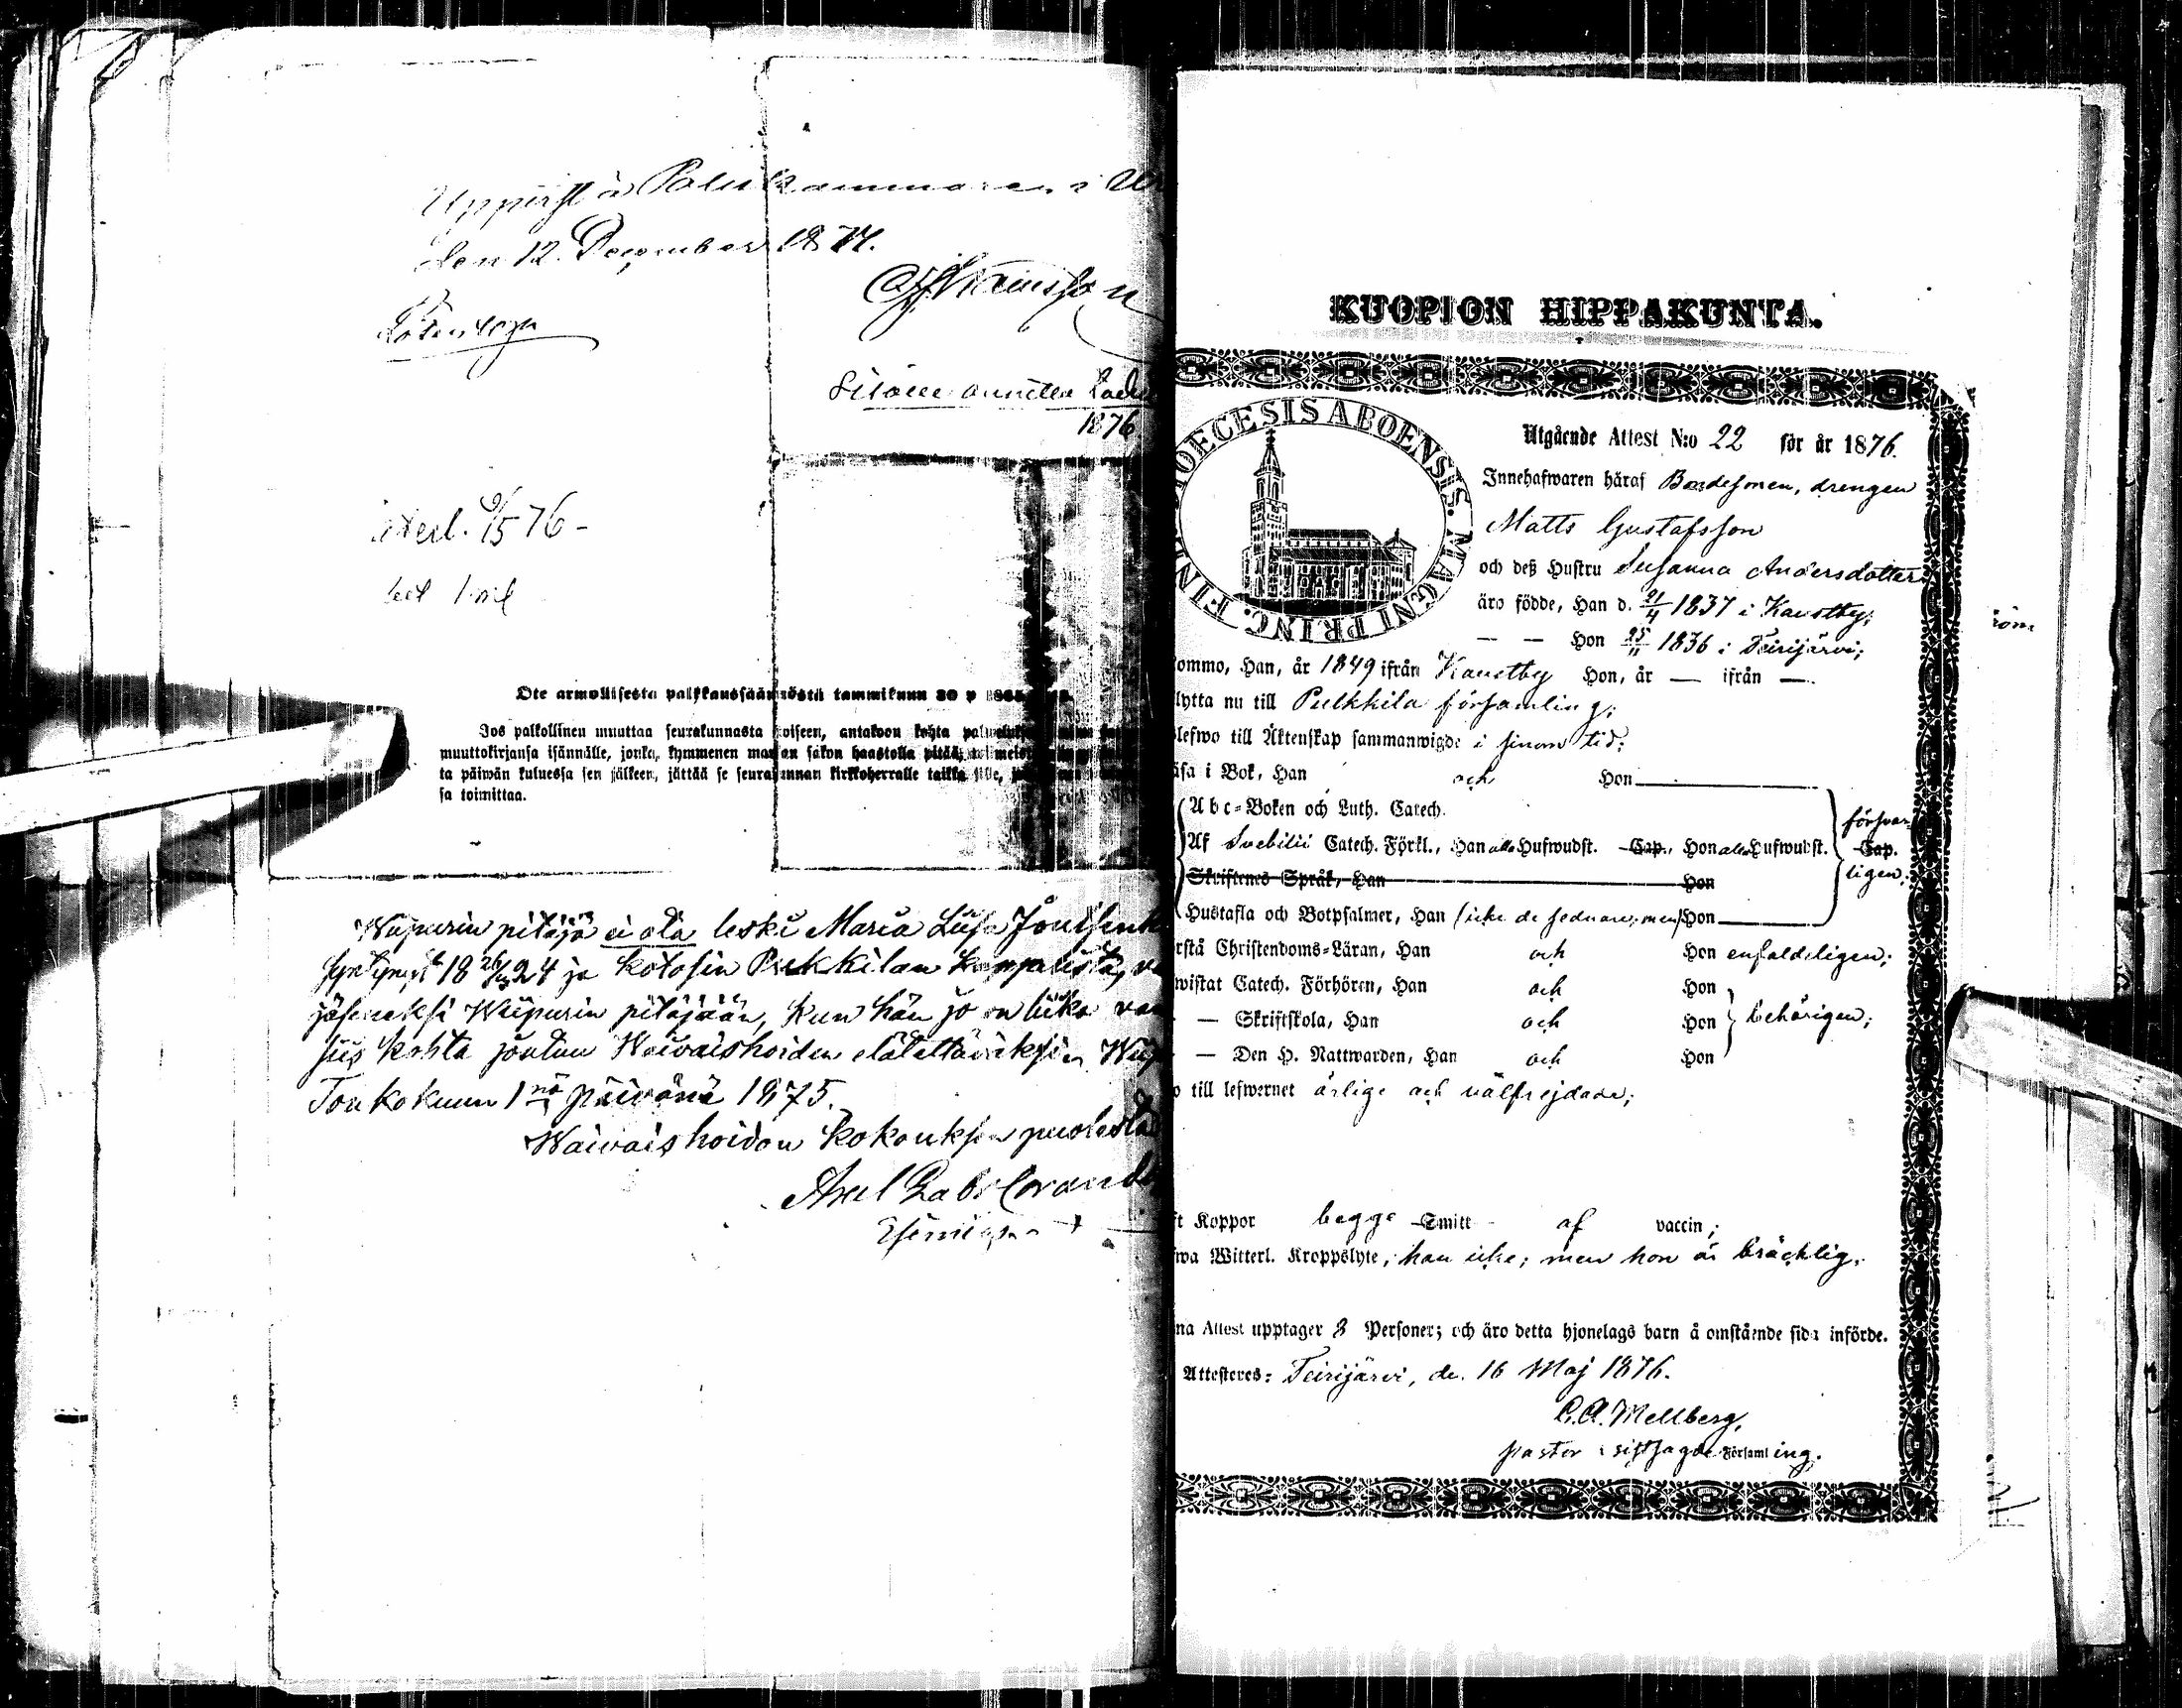 Uppvist å Poliskammaren i
den 12 December 1874.
Lösen 40 pi
Sisälle annettu
1876
15 76 -
Ote armollisesta palkkaussäännöstä tammikuun 30 p
Jos palkollinen muuttaa seurakunnasta toiseen, antakoon kohta
muuttokirjansa isännälle, jonka, kymmenen markan sakon haastolla pitää,
ta päiwän kuluessa sen jälkeen, jättää se seurakunnan kirkkoherralle taikka
sa toimittaa.
Wiipurin pitäjä ei ota leski Maria Liisa
syntynyt 18 24 ja kotosin Pulkkilan kappelista,
jäseneksi Wiipurin pitäjään, kun hän jo on liika
siis kohta joutuu Waivaishoidon elätettäväksi.
Toukokuun 1nä päivänä 1875.
Waivaishoidon kokouksen puolesta
Axel Gabr
Esimies
KUOPION HIPPAKUNTA.
DIOECESIS ABOENSIS. MAGNI PRINC. FINL
Utgående Attest N:o 22 för år 1876.
Innehafwaren häraf Bondesonen, drengen
Matts Gustafsson
och deß Hustru Susanna Andersdotter
äro födde, Han d. 21/4 1837 i Kaustby;
— — Hon 25/11 1836 i Teirijärvi;
ommo, Han, år 1849 ifrån Kaustby Hon, år — ifrån —.
lytta nu till Pulkkila församling;
lefwo till Äktenskap sammanwigde i sinom tid;
äsa i Bok, Han och Hon
Abc-Boken och Luth. Catech.
Af Svebilii Catech. Förkl., Han alla Hufwudst. Cap., Hon alla Hufwudst. Cap. försvarligen;
Skriftenes Språk, Han Hon
Hustafla och Botpsalmer, Han (icke de sednare, men) Hon
rstå Christendoms-Läran, Han och Hon enfaldeligen;
wistat Catech. Förhören, Han och Hon
— Skriftskola, Han och Hon behörigen;
— Den H. Nattwarden, Han och Hon
o till lefwernet ärlige och välfrejdade;
ft Koppor begge Smitt af vaccin;
fwa Witterl. Kroppslyte; han icke; men hon är bräcklig.
na Attest upptager 8 Personer; och äro detta hjonelags barn å omstående sida införde.
Attesteres: Teirijärvi, de. 16 Maj 1876.
C. A. Mellberg,
pastor i sistsagde Församling.